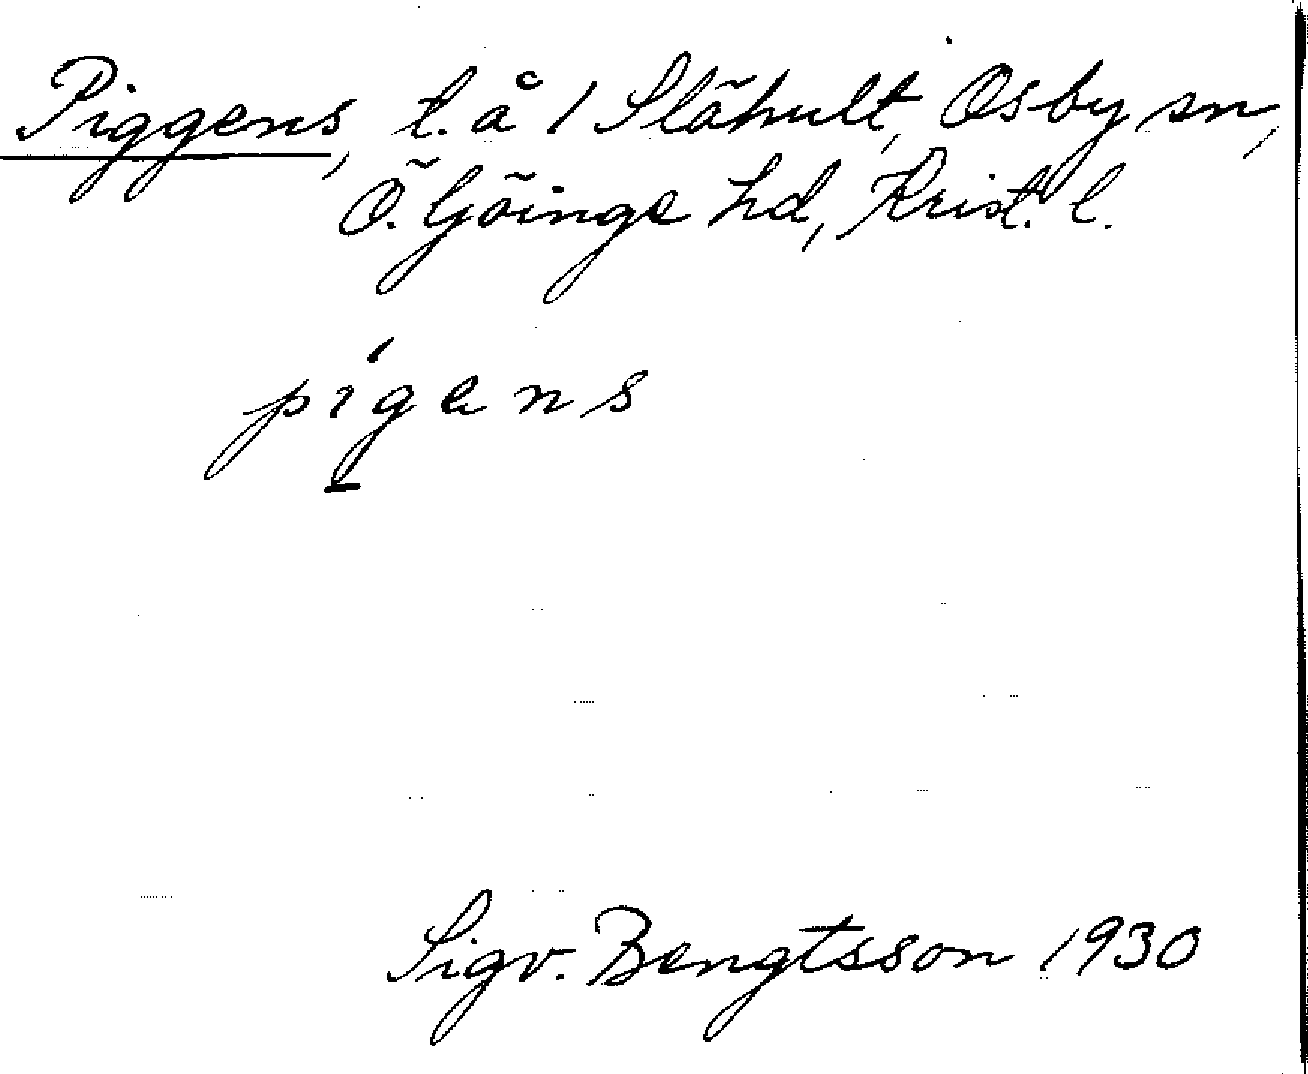 Piggens, t. å 1 Slähult, Osby sn,
Ö. Göinge hd, Krist. l.
pígens
Sigv. Bengtsson 1930